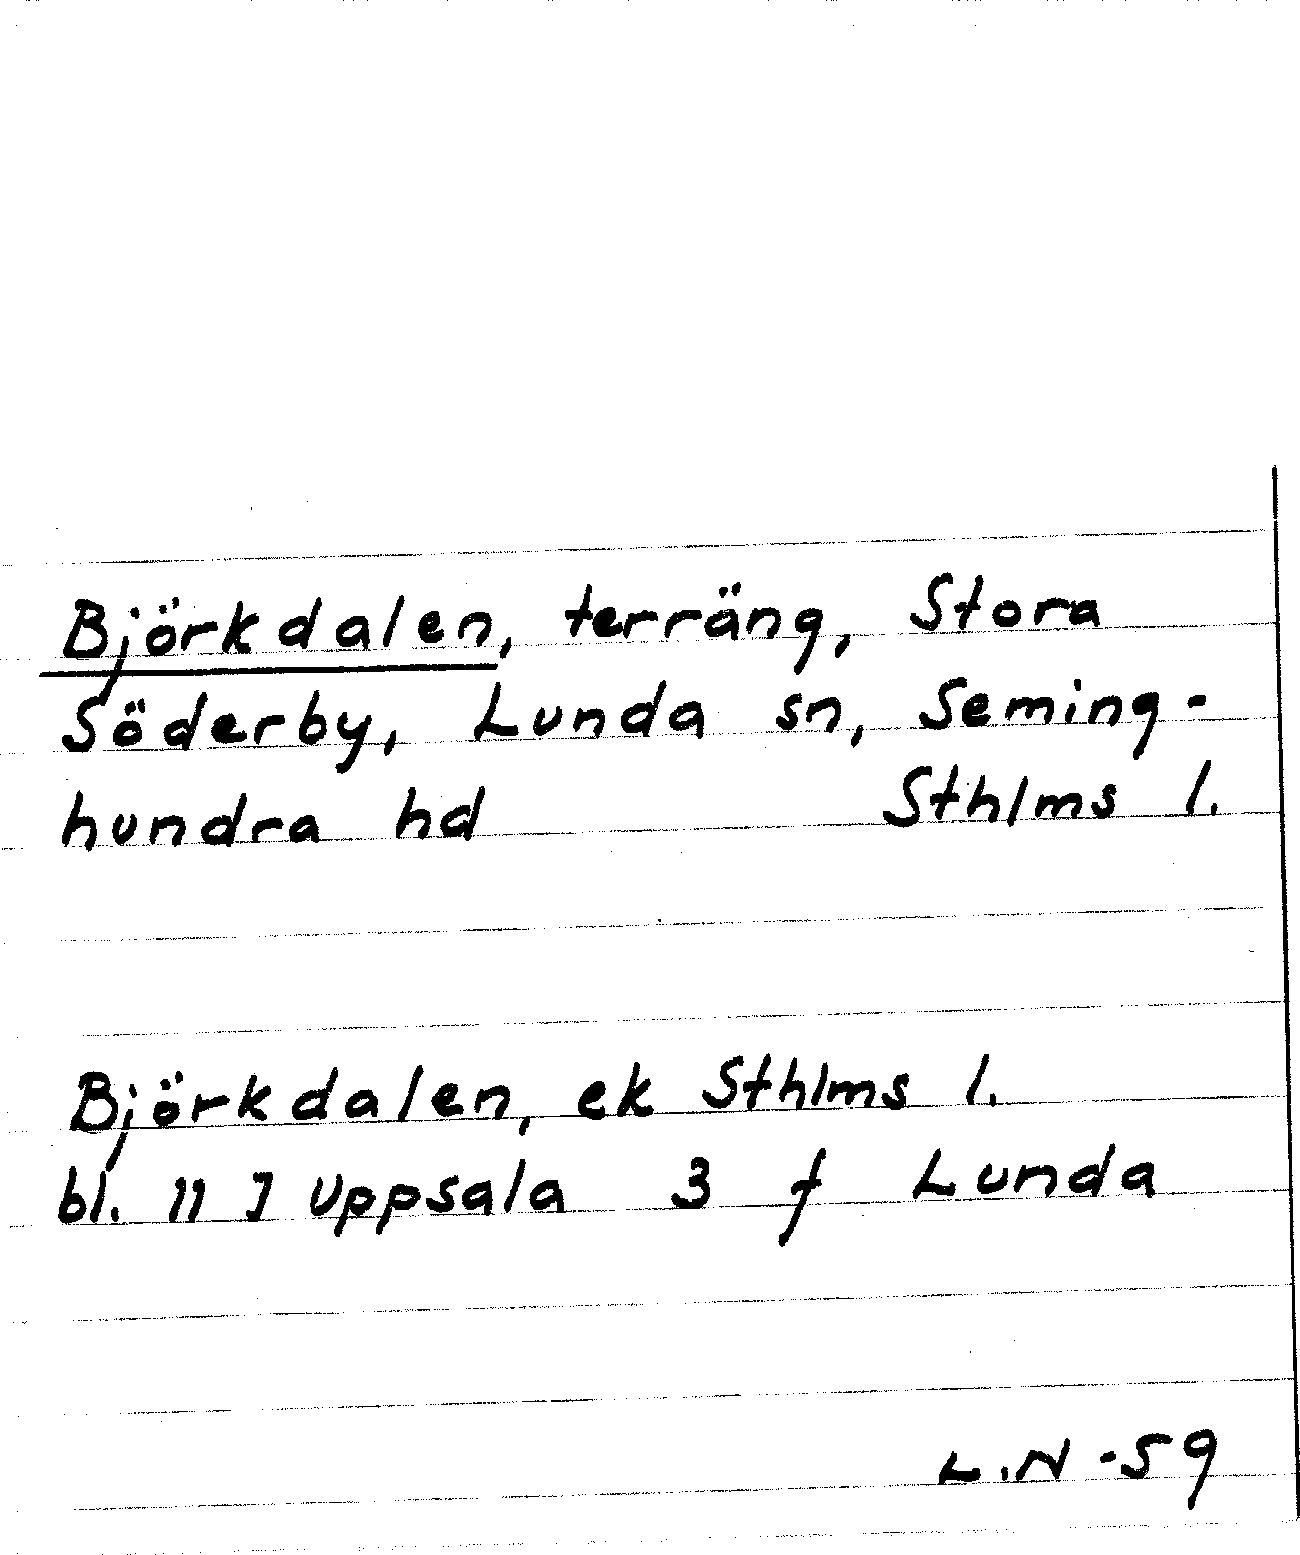 Björkdalen, terräng, Stora
Söderby, Lunda sn, Seming-
hundra hd Sthlms l.
Björkdalen, ek Sthlms l.
bl. 11 I Uppsala 3 f Lunda
L.N -59